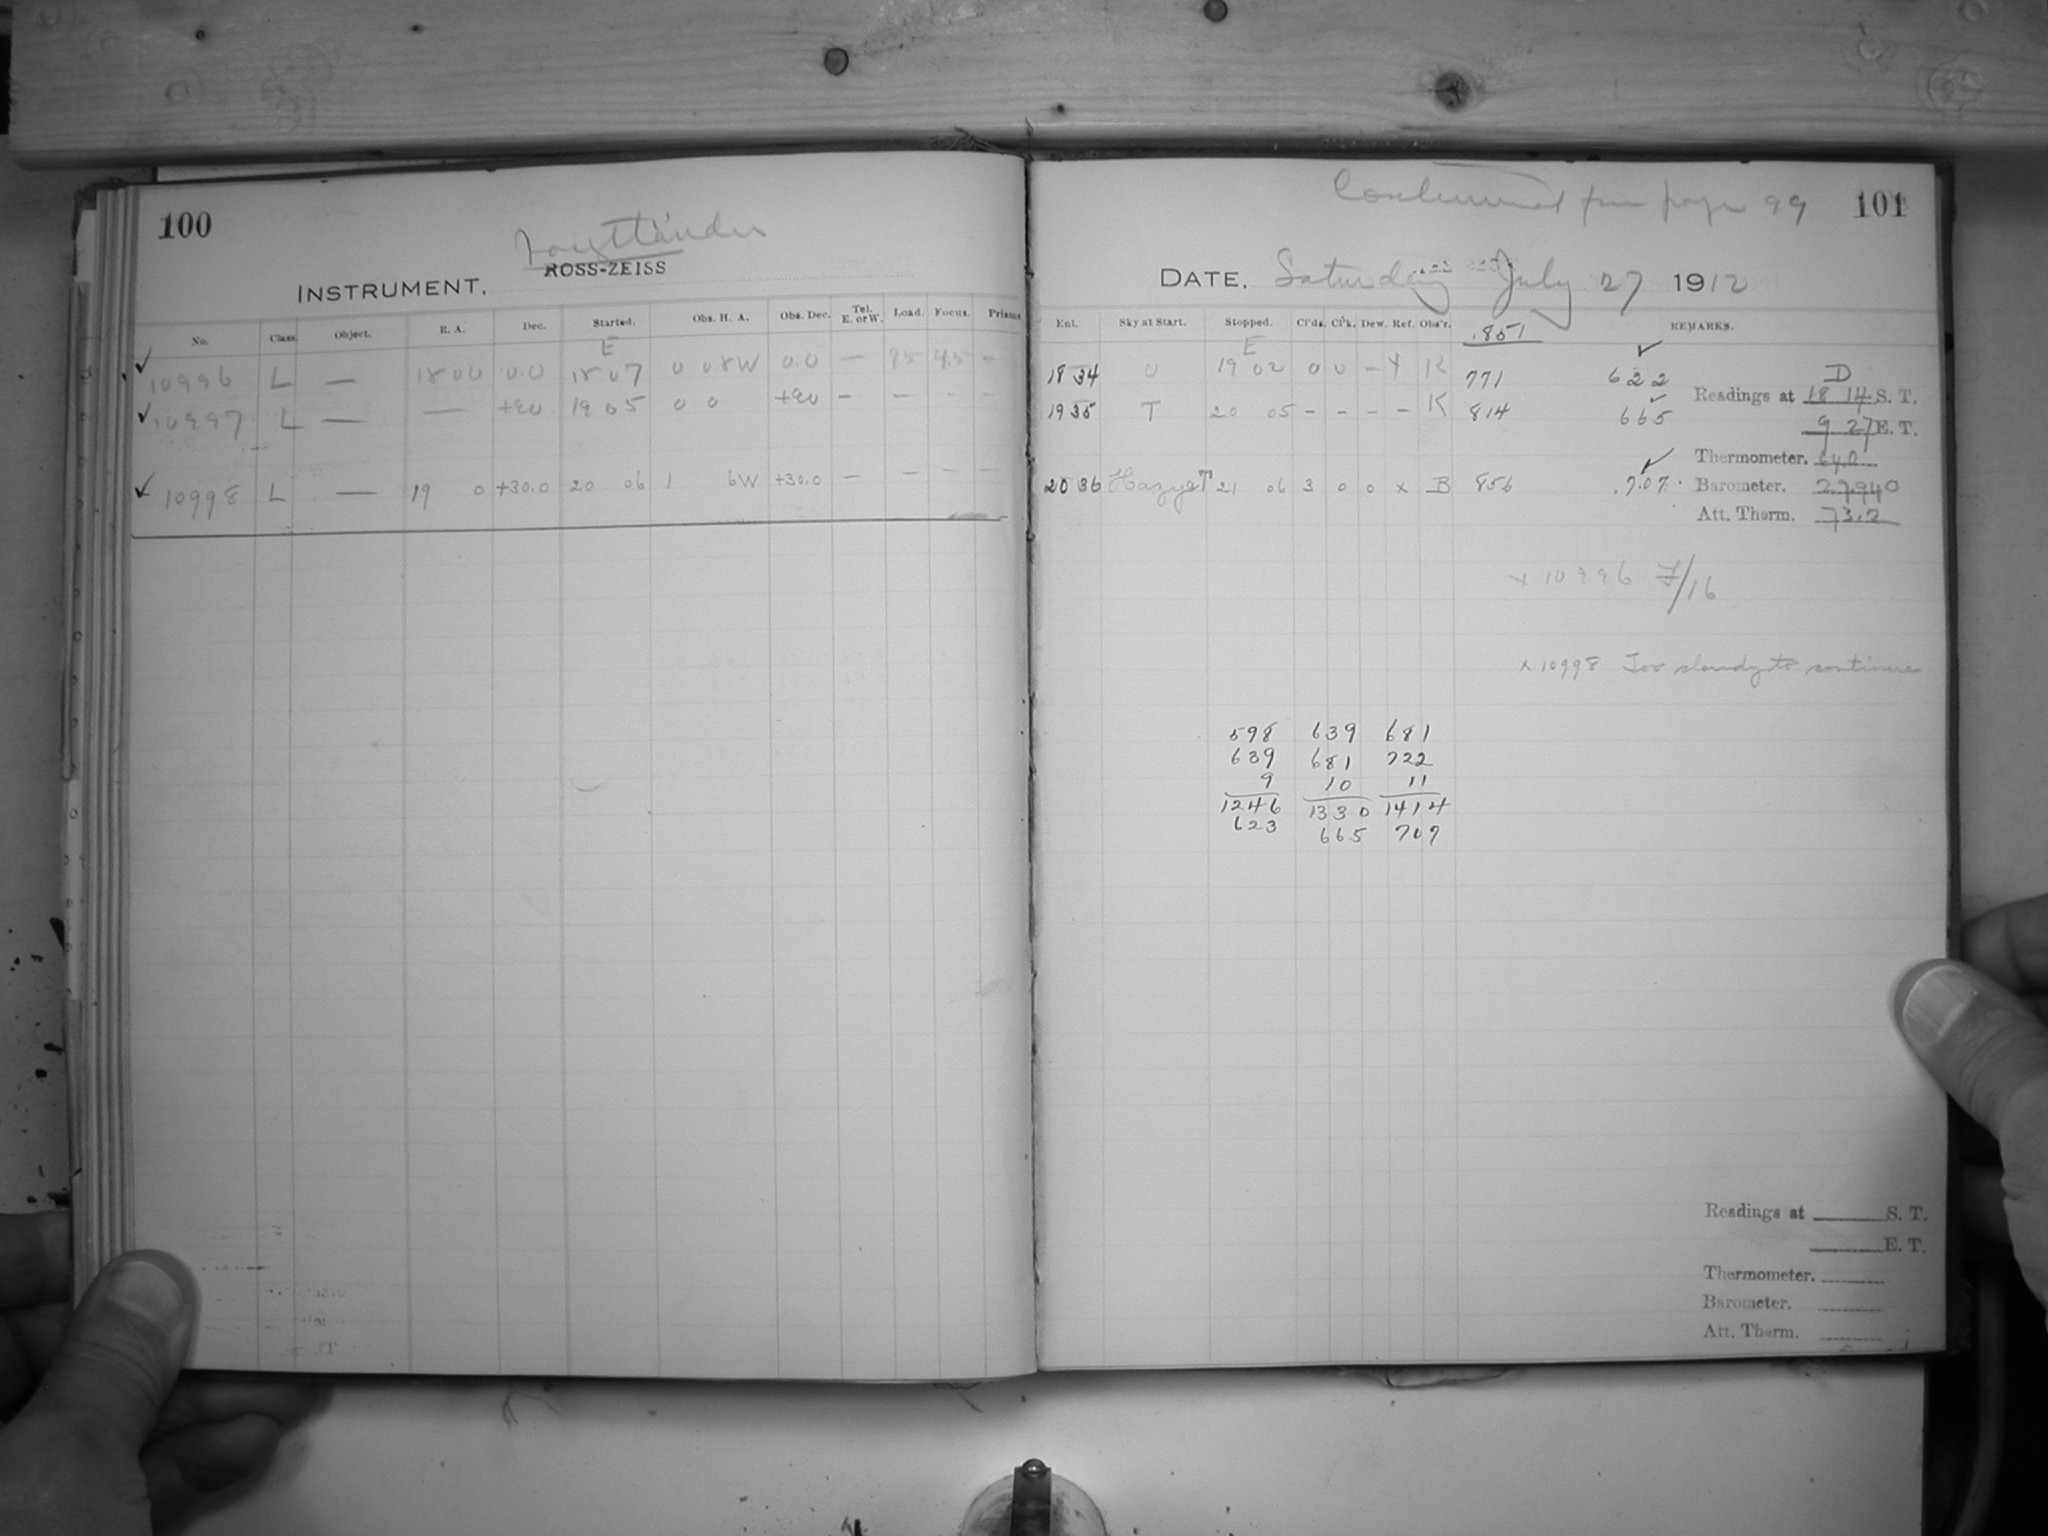 100
Voigtländer
INSTRUMENT. ROSS-ZEISS
No. Class. Object. R. A. Dec. Started. Obs. H. A. Obs. Dec. Tel. E. or W. Load. Focus. Prisms
E
✓ 10996 L — 18 00 0.0 18 07 0 08W 0.0 — 95 4.5 –
✓ 10997 L — — +90 19 05 0 0 +90 – – – –
✓ 10998 L — 19 0 +30.0 20 06 1 6W +30.0 – – – –
Continued from page 99 101
DATE. Saturday July 27 1912
Ent. Sky at Start. Stopped. Cl'ds. Cl'k. Dew. Ref. Obs'r. .851 REMARKS.
E ✓
18 34 0 19 02 0 0 – Y K 771 622
19 35 T 20 05 – – – – K 814 665 ✓
20 36 Hazy T 21 06 3 0 0 x B 856 .707. ✓
D
Readings at 18 14 S. T.
9 27 E. T.
Thermometer. 64.0
Barometer. 27.940
Att. Therm. 73.2
x 10996 F/16
x 10998 Too cloudy to continue
598 639 681
639 681 722
9 10 11
1246 1330 1414
623 665 707
Readings at S. T.
E. T.
Thermometer.
Barometer.
Att. Therm.